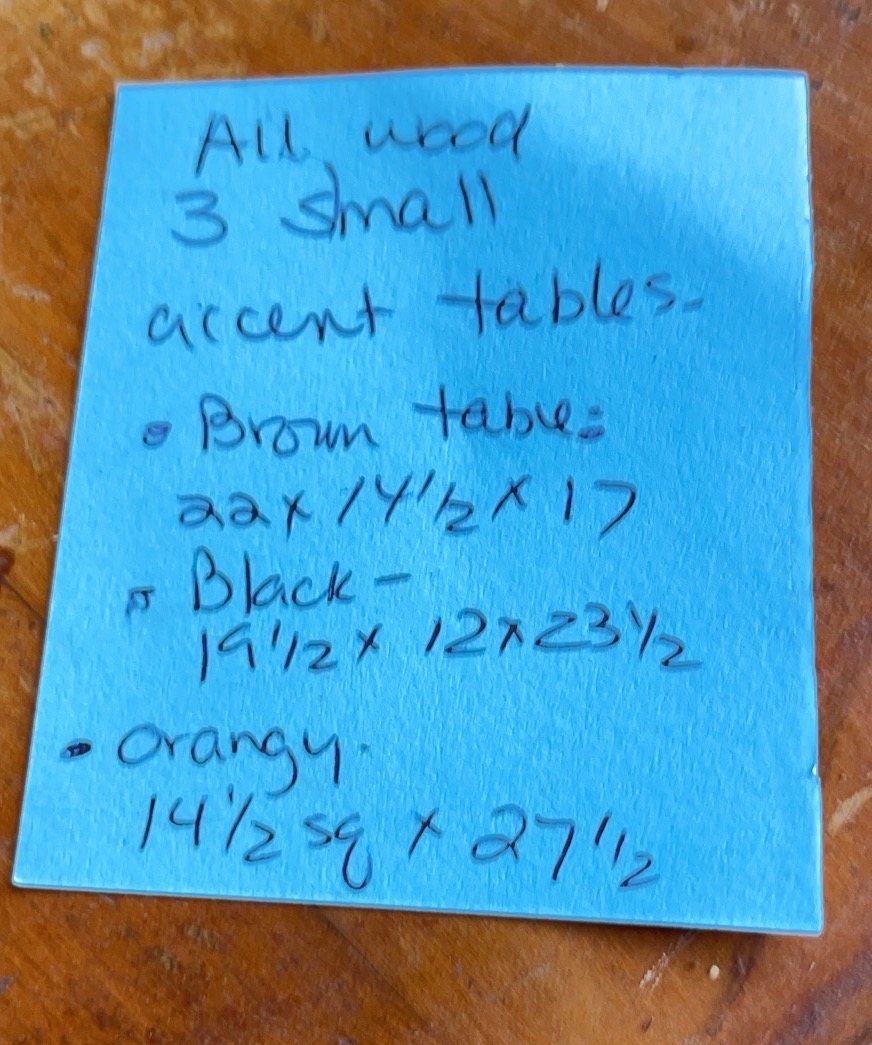 All wood
3 small
accent tables-
• Brown table:
22 x 14 1/2 x 17
• Black -
19 1/2 x 12 x 23 1/2
• Orangy.
14 1/2 sq x 27 1/2